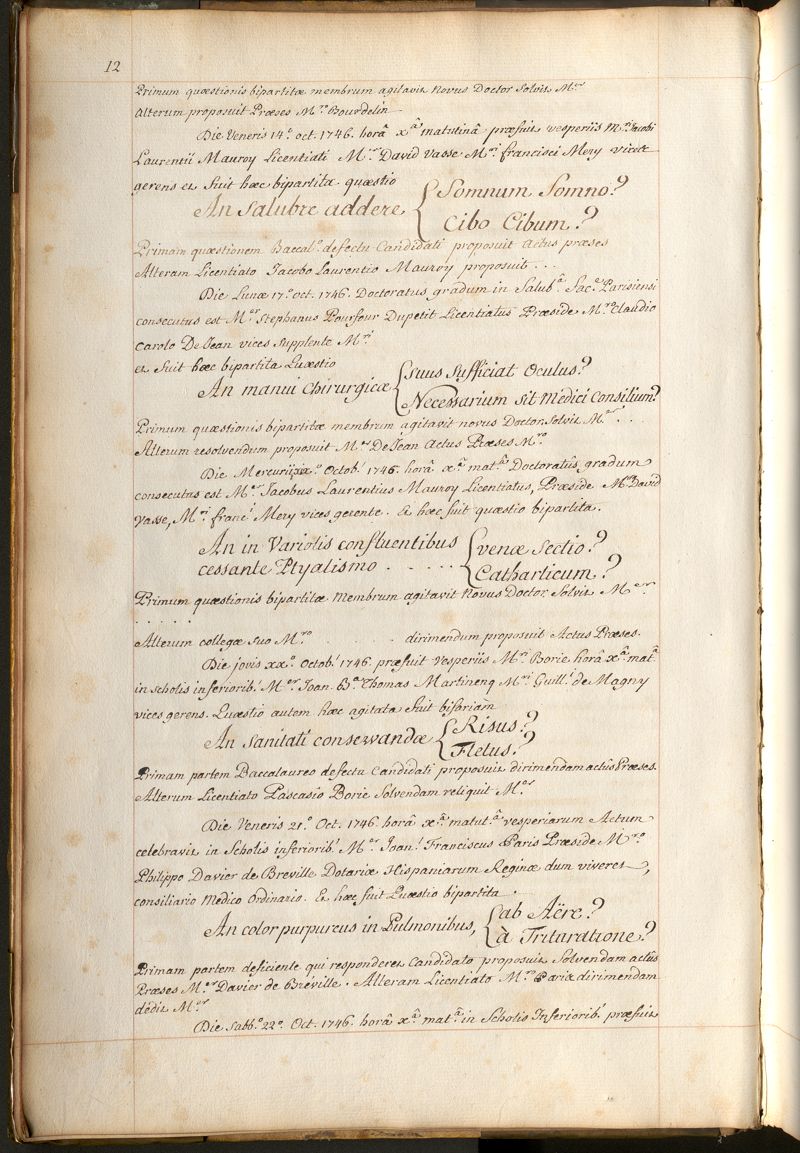 12
Primum quæstionis bipartitæ membrum agitavit Novus Doctor Solvit M.er
Alterum proposuit Præses M.er Bourdelin
Die Veneris 14.° oct. 1746. horâ X.â matutinâ præfuit vesperiis M.ri Jacobi
Laurentii Mauroy Licentiati M.er David Vasse M.ri francisci Mery vices
gerens et fuit hæc bipartita quæstio
An Salubre addere { Somnum Somno?
Cibo Cibum?
Primam quæstionem Baccal.° defectu Candidati proposuit actus præses
Alteram Licentiato Jacobo Laurentio Mauroy proposuit . . .
Die Lunæ 17.° oct. 1746. Doctoratus gradum in Salub.â Fac.e Parisiensi
consecutus est M.er Stephanus Pourfour Dupetit Licentiatus Præside M.ro Claudio
Carolo De Jean vices supplente M.ri
et fuit hæc bipartita Quæstio
An manui Chirurgicæ { suus sufficiat Oculus?
Necessarium sit Medici Consilium?
Primum quæstionis bipartitæ membrum agitavit novus Doctor. Solvit M.er . . .
Alterum resolvendum proposuit M.er De Jean Actus Præses M.ro
Die Mercurii xix.° Octob.! 1746. horâ X.â mat.â Doctoratûs gradum
consecutus est M.er Jacobus Laurentius Mauroy Licentiatus, Præside M.ro David
Vasse, M.ri franc.! Mery vices gerente. Et hæc fuit quæstio bipartita.
An in Variolis confluentibus { venæ Sectio?
cessante Ptyalismo . . . . . Catharticum?
Primum quæstionis bipartitæ Membrum agitavit Novus Doctor. Solvit M.er
. . . . .
Alterum collegæ suo M.ro . . . . . dirimendum proposuit Actus Præses.
Die jovis xx.° Octob.! 1746. præfuit Vesperiis M.ri Borie horâ X.â mat.â
in scholis inferiorib.! M.er Joan. B.a Thomas Martinenq M.ri Guill.! de Magny
vices gerens. Quæstio autem hæc agitata fuit bifariàm
An sanitati conservandæ { Risus?
Fletus?
Primam partem Baccalaureo defectu Candidati proposuit dirimendam actûs Præses.
Alterum Licentiato Pascasio Borie Solvendam reliquit M.er
Die Veneris 21.° Oct. 1746. horâ X.â matut.â vesperiarum Actum
celebravit in Scholis inferiorib.! M.er Joan.! Franciscus Paris Præside M.ro
Philippo Davier de Breville Dotariæ Hispaniarum Reginæ dum viveret,
consiliario Medico Ordinario. Et hæc fuit Quæstio bipartita.
An color purpureus in Pulmonibus, { ab Aëre?
à Trituratione?
Primam partem deficiente qui responderet Candidato proposuit Solvendam actûs
Præses M.er Davier de Bréville. Alteram Licentiato M.ro Paris dirimendam
dedit M.er
Die Sabb.° 22.° Oct. 1746. horâ X.â mat.â in Scholis Inferiorib.! præfuit